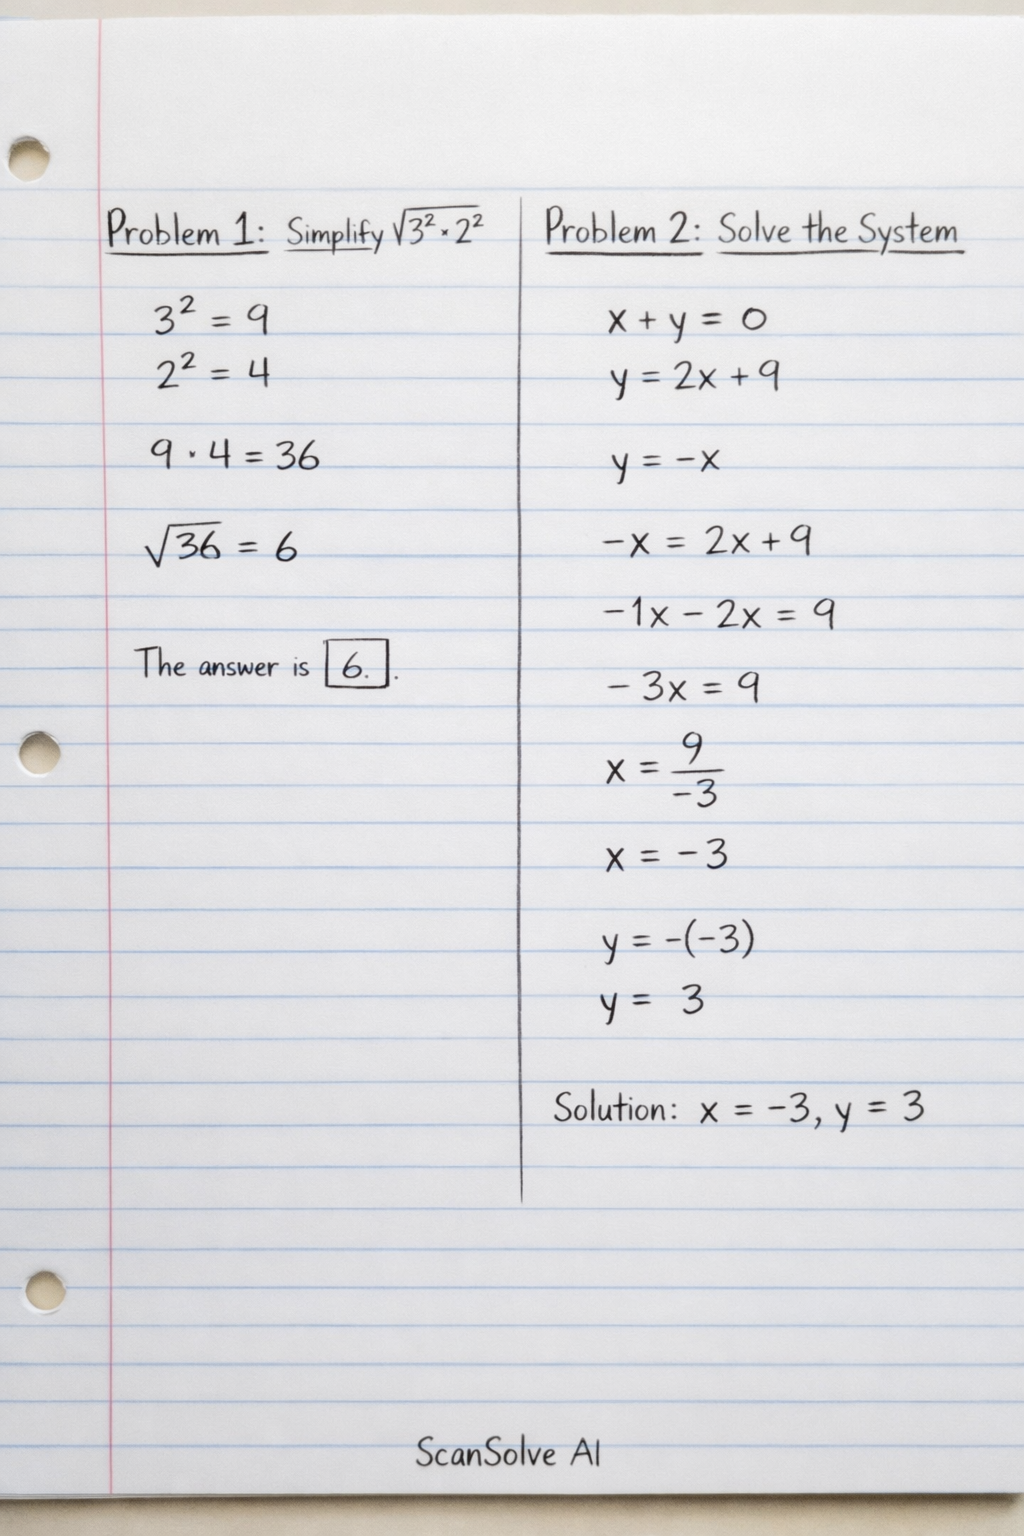 Problem 1: Simplify √3² · 2²
3² = 9
2² = 4
9 · 4 = 36
√36 = 6
The answer is 6. .
Problem 2: Solve the System
x + y = 0
y = 2x + 9
y = -x
-x = 2x + 9
-1x - 2x = 9
- 3x = 9
x = 9/-3
x = -3
y = -(-3)
y = 3
Solution: x = -3, y = 3
ScanSolve AI